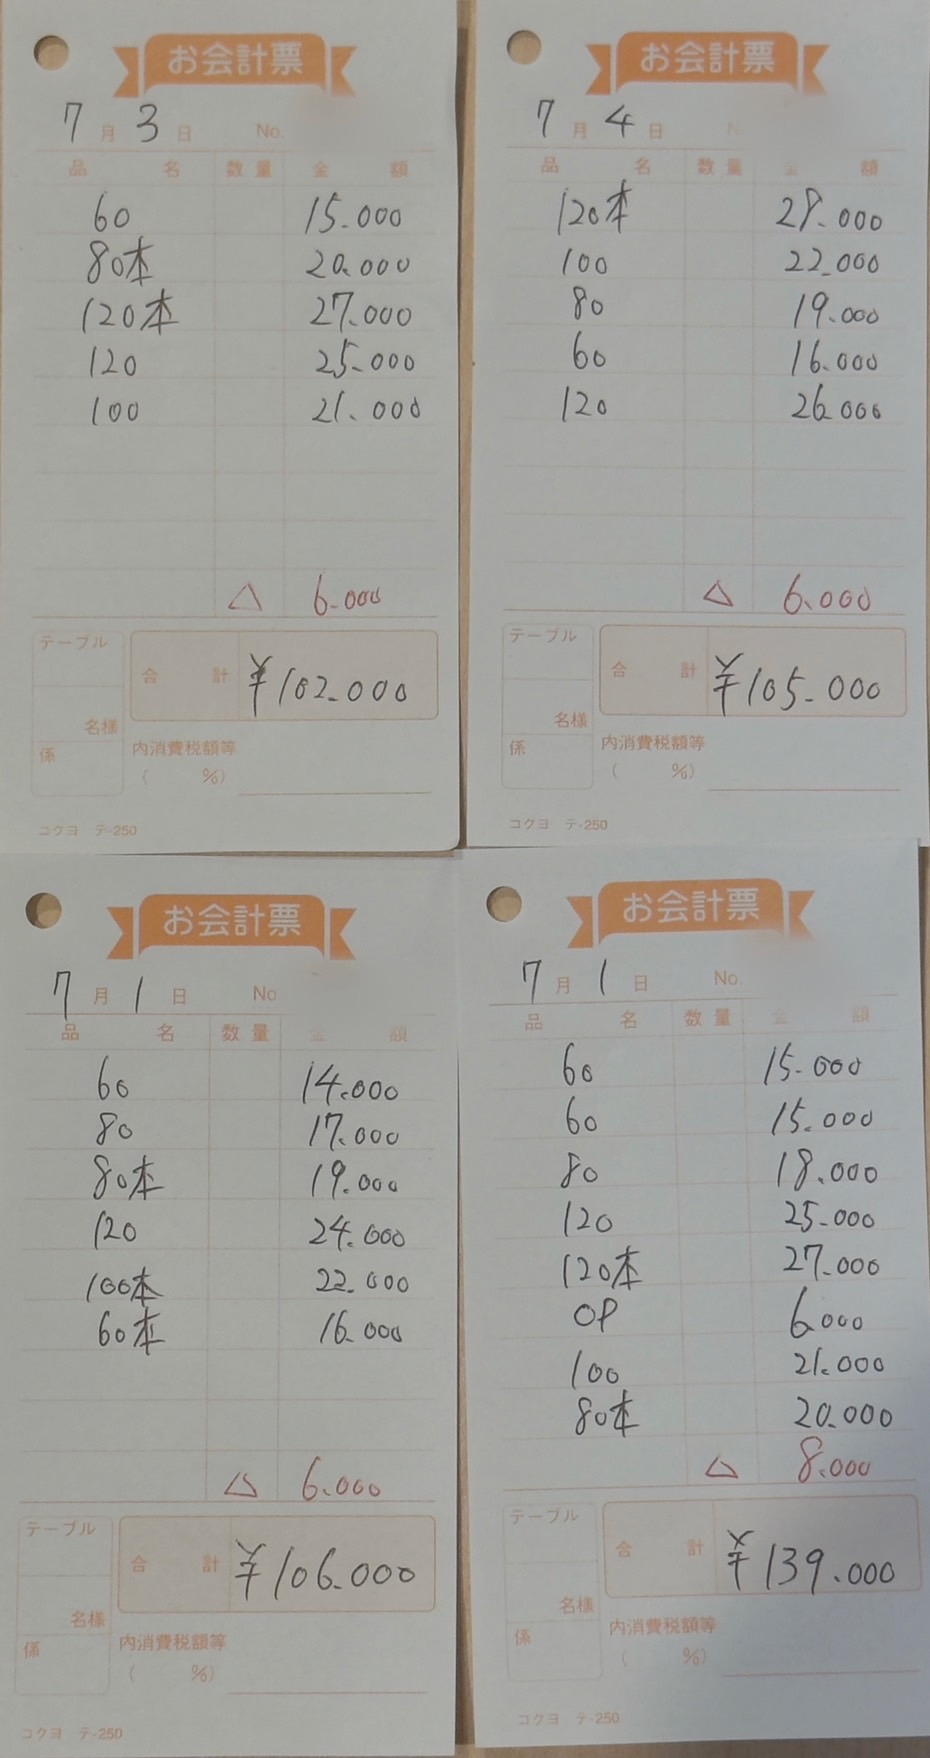 お会計票
7月3日 No.
品名 数量 金額
60 15.000
80本 20.000
120本 27.000
120 25.000
100 21.000
△ 6.000
テーブル
合計 ¥102.000
名様
係 内消費税額等
( %)
コクヨ テ-250
お会計票
7月4日 N
品名 数量 金額
120本 28.000
100 22.000
80 19.000
60 16.000
120 26.000
△ 6.000
テーブル
合計 ¥105.000
名様
係 内消費税額等
( %)
コクヨ テ-250
お会計票
7月1日 No
品名 数量 金額
60 14.000
80 17.000
80本 19.000
120 24.000
100本 22.000
60本 16.000
△ 6.000
テーブル
合計 ¥106.000
名様
係 内消費税額等
( %)
コクヨ テ-250
お会計票
7月1日 No.
品名 数量 金額
60 15.000
60 15.000
80 18.000
120 25.000
120本 27.000
OP 6.000
100 21.000
80本 20.000
△ 8.000
テーブル
合計 ¥139.000
名様
係 内消費税額等
( %)
コクヨ テ-250